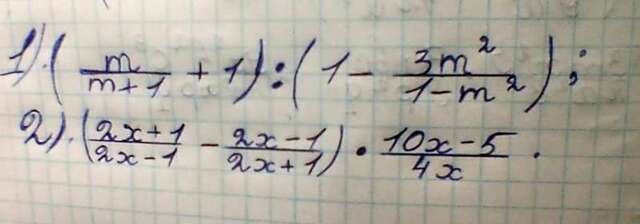 1). (m/(m+1) + 1) : (1 - 3m²/(1-m²));
2). ((2x+1)/(2x-1) - (2x-1)/(2x+1)) · (10x-5)/(4x).